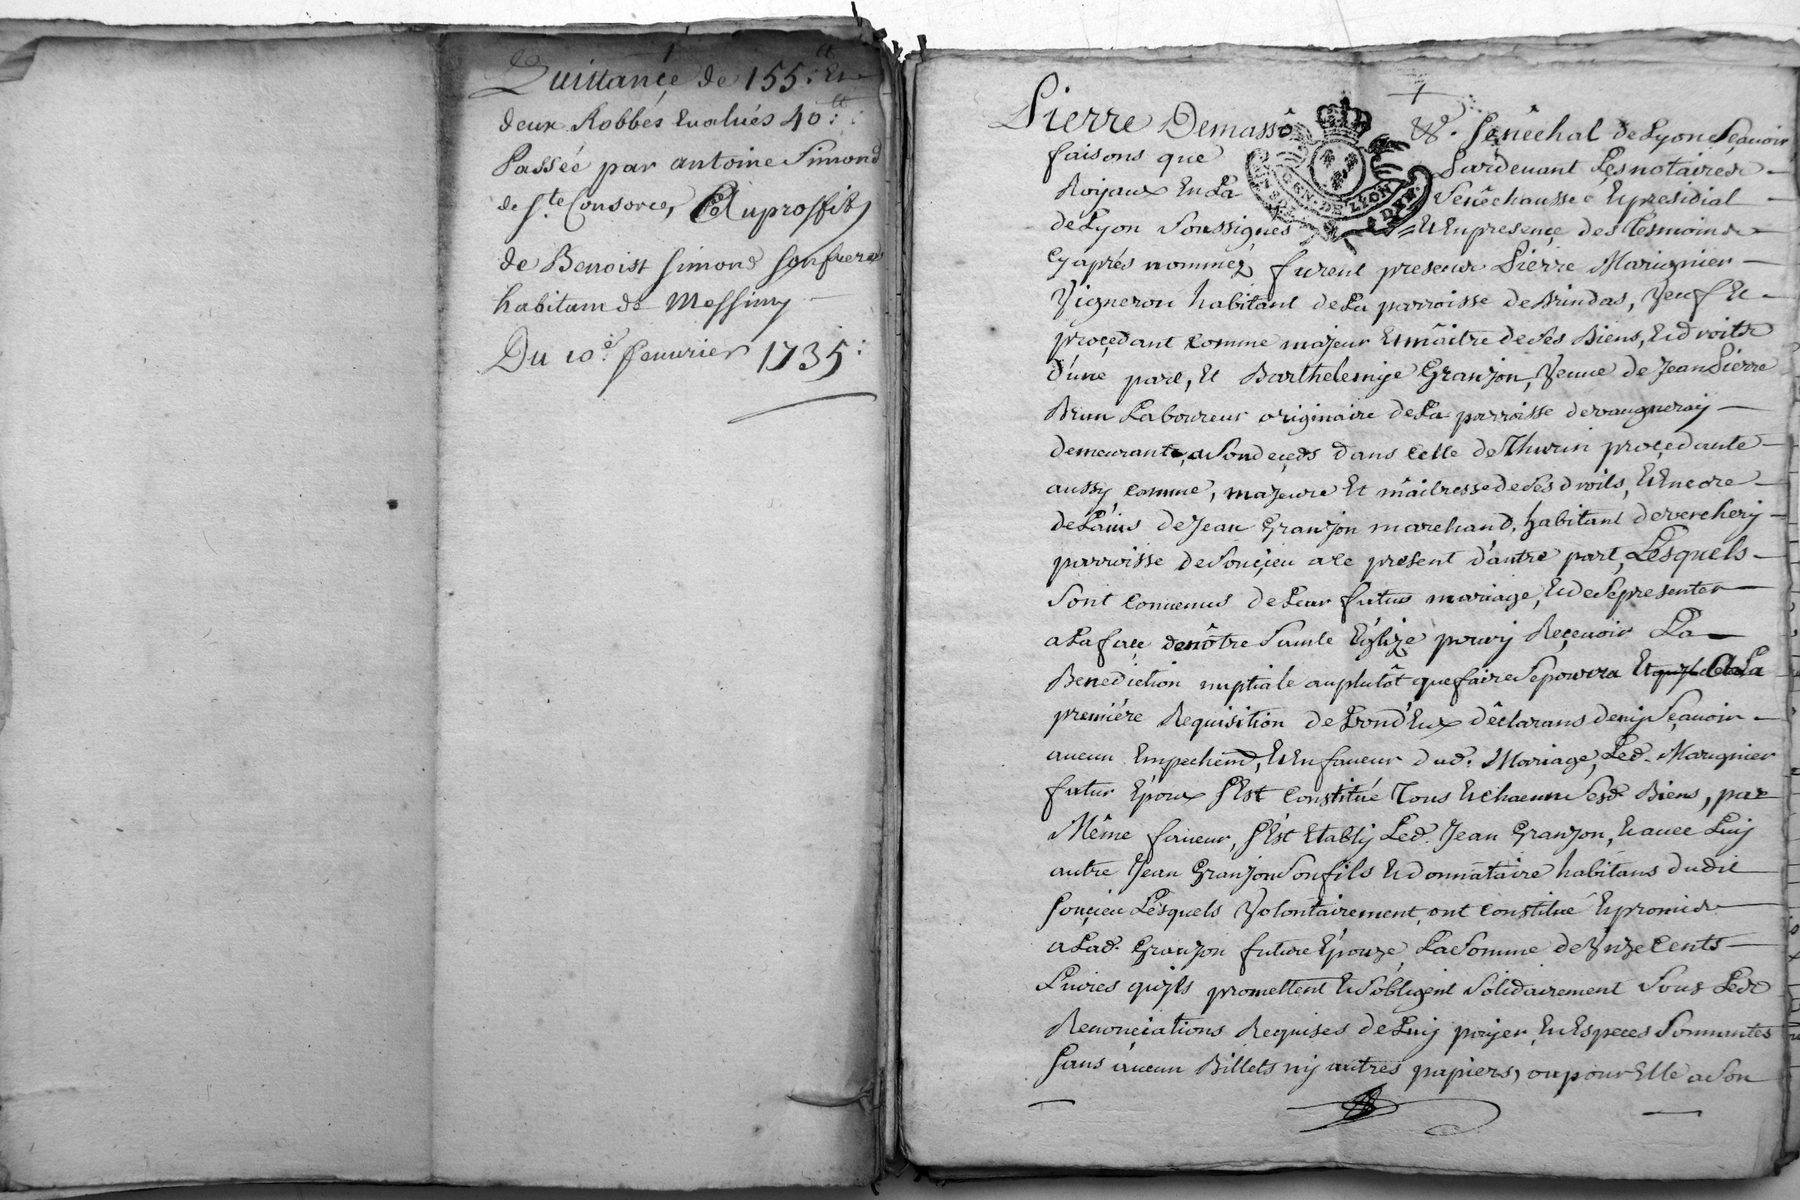 Quittançe de 155:tt Et
deux Robbes Evalués 40:tt
Passée par antoine Simond
de Ste Consorce, Et Auproffit
de Benoist Simond Son frere
habitant de Messimy
Du 10e feuvrier 1735:
Pierre Demassô Sénêchal de Lyon Sçavoir
faisons que Pardevant Les notaires
Roÿaux En La Senêchaussée Et presidial
de Lyon Soussignés Et En presençe des Tesmoins
Cy aprés nommez furent presens Pierre Marignier
Vigneron habitant de La parroisse de Brindas, Veuf Et
proçedant Comme majeur Et maître de Ses Biens, Et droits
d'une part, Et Barthelemije Granjon, Veuve de Jean Pierre
Brun Laboureur originaire de La parroisse devaugneraÿ
demeurante, a Son deçeds dans Celle de Thurin proçedante
aussÿ Comme, majeure Et maîtresse de Ses droits, Et Encore
de L'avis de Jean Granjon marchand, habitant de vercherÿ
parroisse de Souçieu a Ce present d'autre part, Lesquels
Sont Convenus de Leur futur mariage, Et de Se presenter
a La façe de nôtre Sainte Eglize pour ÿ Reçevoir La
Benediction nuptiale au plutôt que faire Se pourra Et a La
premiére Requisition de L'ond'Eux dêclarans denÿ Sçavoir
aucun Empechemt, Et En faveur dud. Mariage, Led. Marignier
futur Epoux S'Est Constitué Tous Et chacuns Sesd. Biens, par
Même faveur, S'Est Etablÿ Led. Jean Granjon, Et avec Luÿ
autre Jean Granjon Son fils Et donnataire habitans dudit
Souçieu Lesquels Volontairement, ont Constitué Et promis
a Lad. Granjon future Epouze, La Somme de Onze Cents
Livres qu'jls promettent Et S'obligent Solidairement Sous Les
Renonçiations Requises de Luÿ paÿer, En Especes Sonnantes
Sans aucun Billets nÿ autres papiers, ou pour Elle a Son